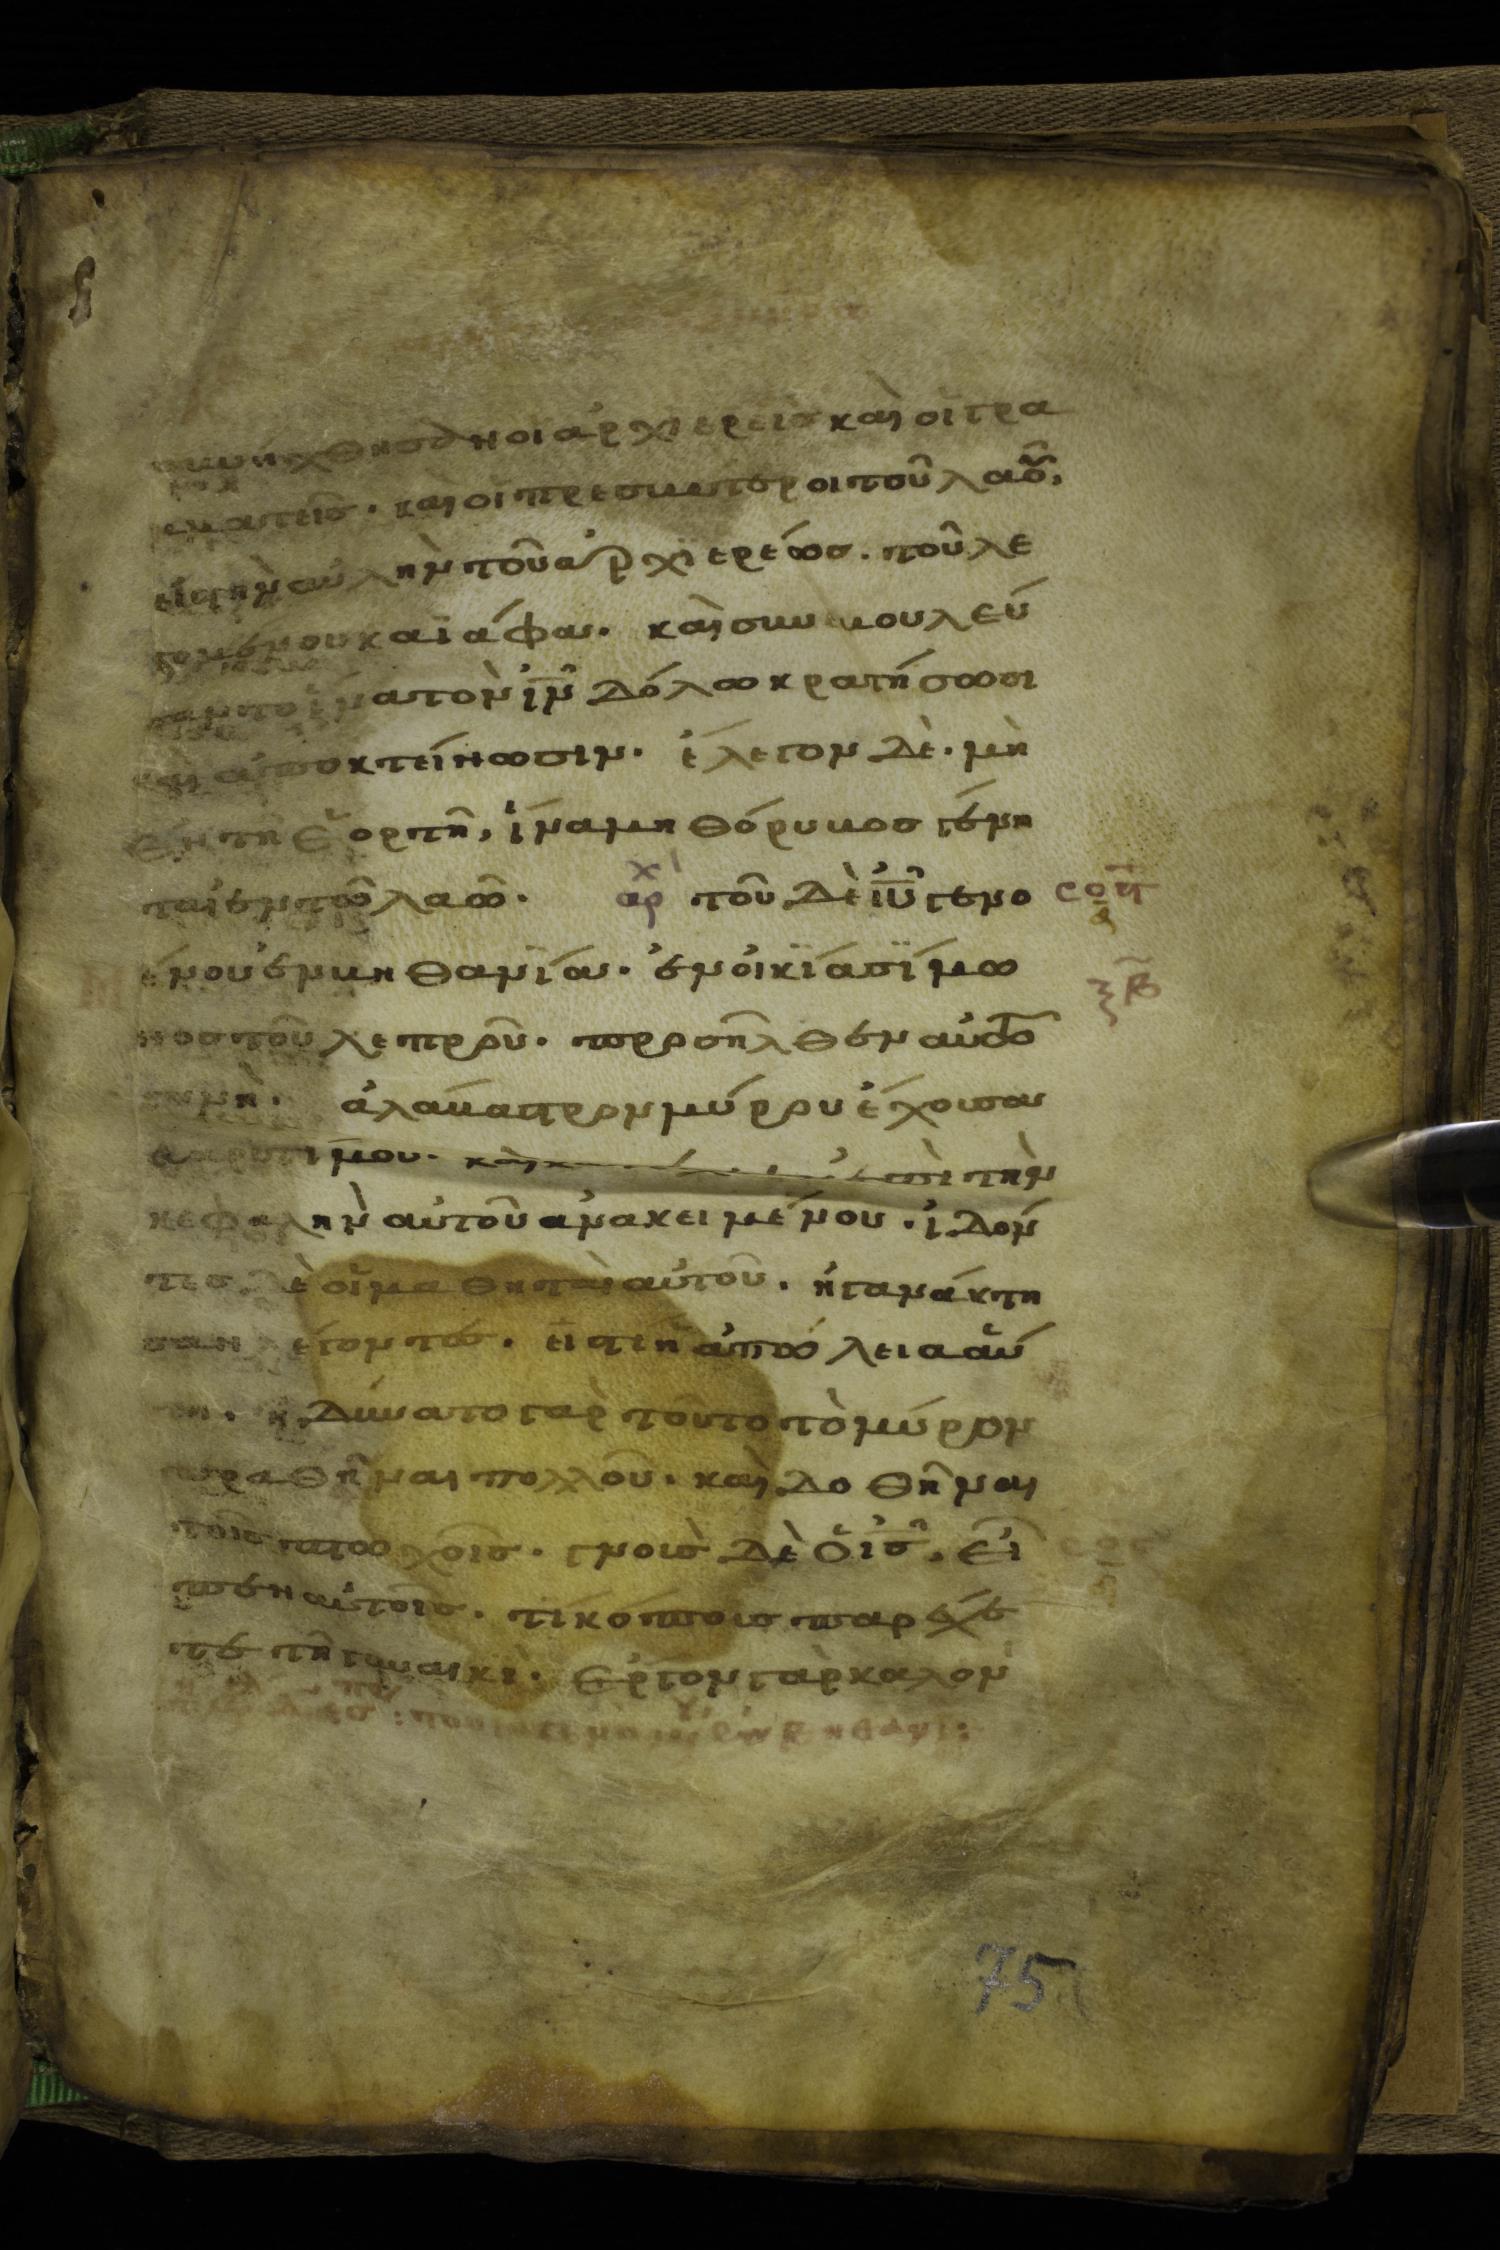 συνήχθησαν οἱ ἀρχιερεῖς καὶ οἱ γρα
μματεῖς. καὶ οἱ πρεσβύτεροι τοῦ λαοῦ,
εἰς τὴν αὐλὴν τοῦ ἀρχϊερέως. τοῦ λε
γομένου καϊάφα. καὶ συνεβουλεύ
σαντο ἵνα τὸν ἰν̅ δόλω κρατήσωσι
καὶ ἀποκτείνωσιν. ἔλεγον δὲ. μὴ
ἐν τῆ ἑορτῆ, ἵνα μη θόρυβος γένη
ται ἐν τῶ λαῶ. αρχ τοῦ δὲ ἰυ̅ γενο
σοη
α
μένου ἐν βηθανΐα. ἐν οἰκΐα σΐμω
ξβ
νος τοῦ λεπροῦ. προσῆλθεν αὐτῶ
γυνὴ. ἀλάβαστρον μύρου ἔχουσα
βαρυτίμου. καὶ ἐπὶ τὴν
κεφαλὴν αὐτοῦ ἀνακειμένου. ἰδόν
τες δὲ οἱ μαθηταὶ αὐτοῦ. ἠγανάκτη
σαν λέγοντες. εἰς τί ἡ ἀπώλεια αὕ
τη. ἠδύνατο γὰρ τοῦτο τὸ μύρον
πραθῆναι πολλοῦ. καὶ δοθῆναι
τοῖς πτωχοῖς. γνοὺς δὲ ὁ ἰς̅, εἶ
πεν αὐτοῖς. τί κόπους παρέχε
τε τῆ γυναικὶ. ἔργον γὰρ καλὸν
75